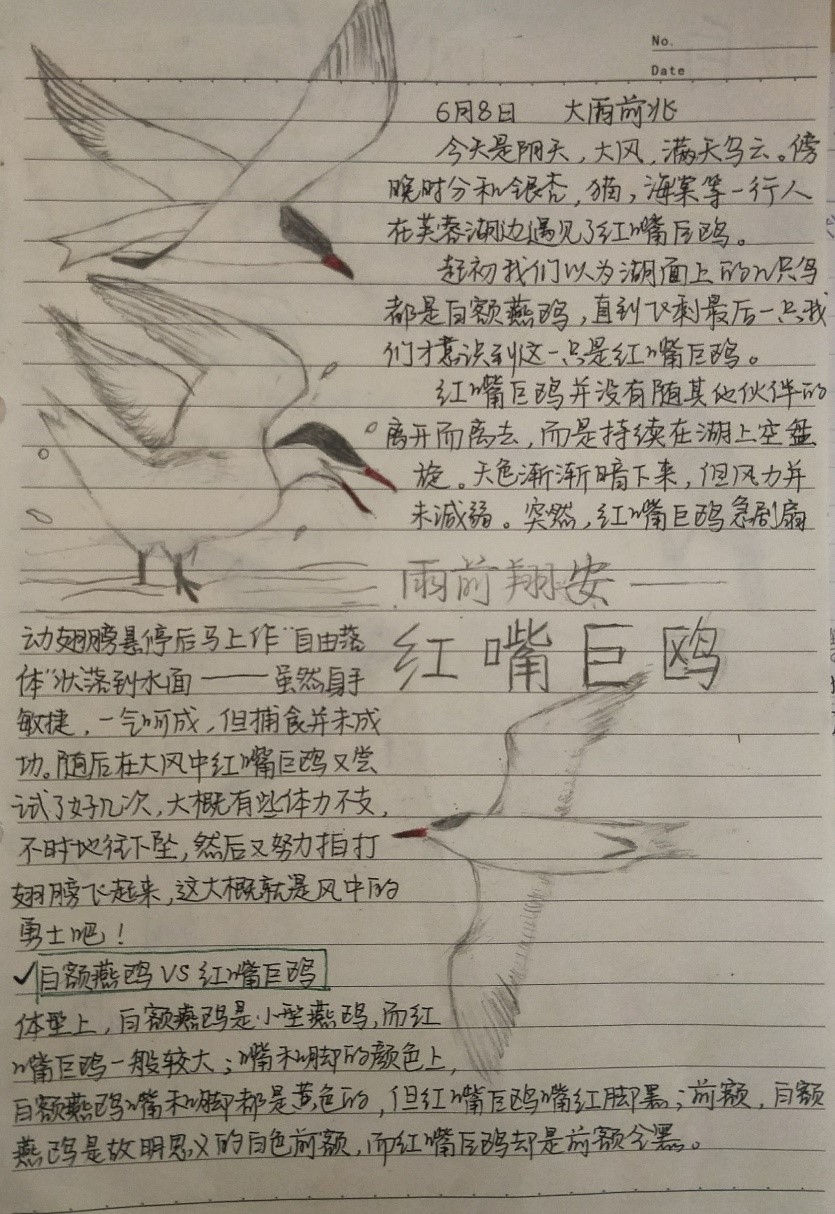 No.
Date
6月8日 大雨前兆
今天是阴天，大风，满天乌云。傍
晚时分和银杏，猫，海棠等一行人
在芙蓉湖边遇见了红嘴巨鸥。
起初我们以为湖面上的几只鸟
都是白额燕鸥，直到飞剩最后一只我
们才意识到这一只是红嘴巨鸥。
红嘴巨鸥并没有随其他伙伴的
离开而离去，而是持续在湖上空盘
旋。天色渐渐暗下来，但风力并
未减弱。突然，红嘴巨鸥急剧扇
雨前翔安——
红嘴巨鸥
动翅膀悬停后马上作“自由落
体”状落到水面——虽然身手
敏捷，一气呵成，但捕食并未成
功。随后在大风中红嘴巨鸥又尝
试了好几次，大概有些体力不支，
不时地往下坠，然后又努力拍打
翅膀飞起来，这大概就是风中的
勇士吧！
✓白额燕鸥 VS 红嘴巨鸥
体型上，白额燕鸥是小型燕鸥，而红
嘴巨鸥一般较大；嘴和脚的颜色上，
白额燕鸥嘴和脚都是黄色的，但红嘴巨鸥嘴红脚黑；前额，白额
燕鸥是故明思义的白色前额，而红嘴巨鸥却是前额全黑。